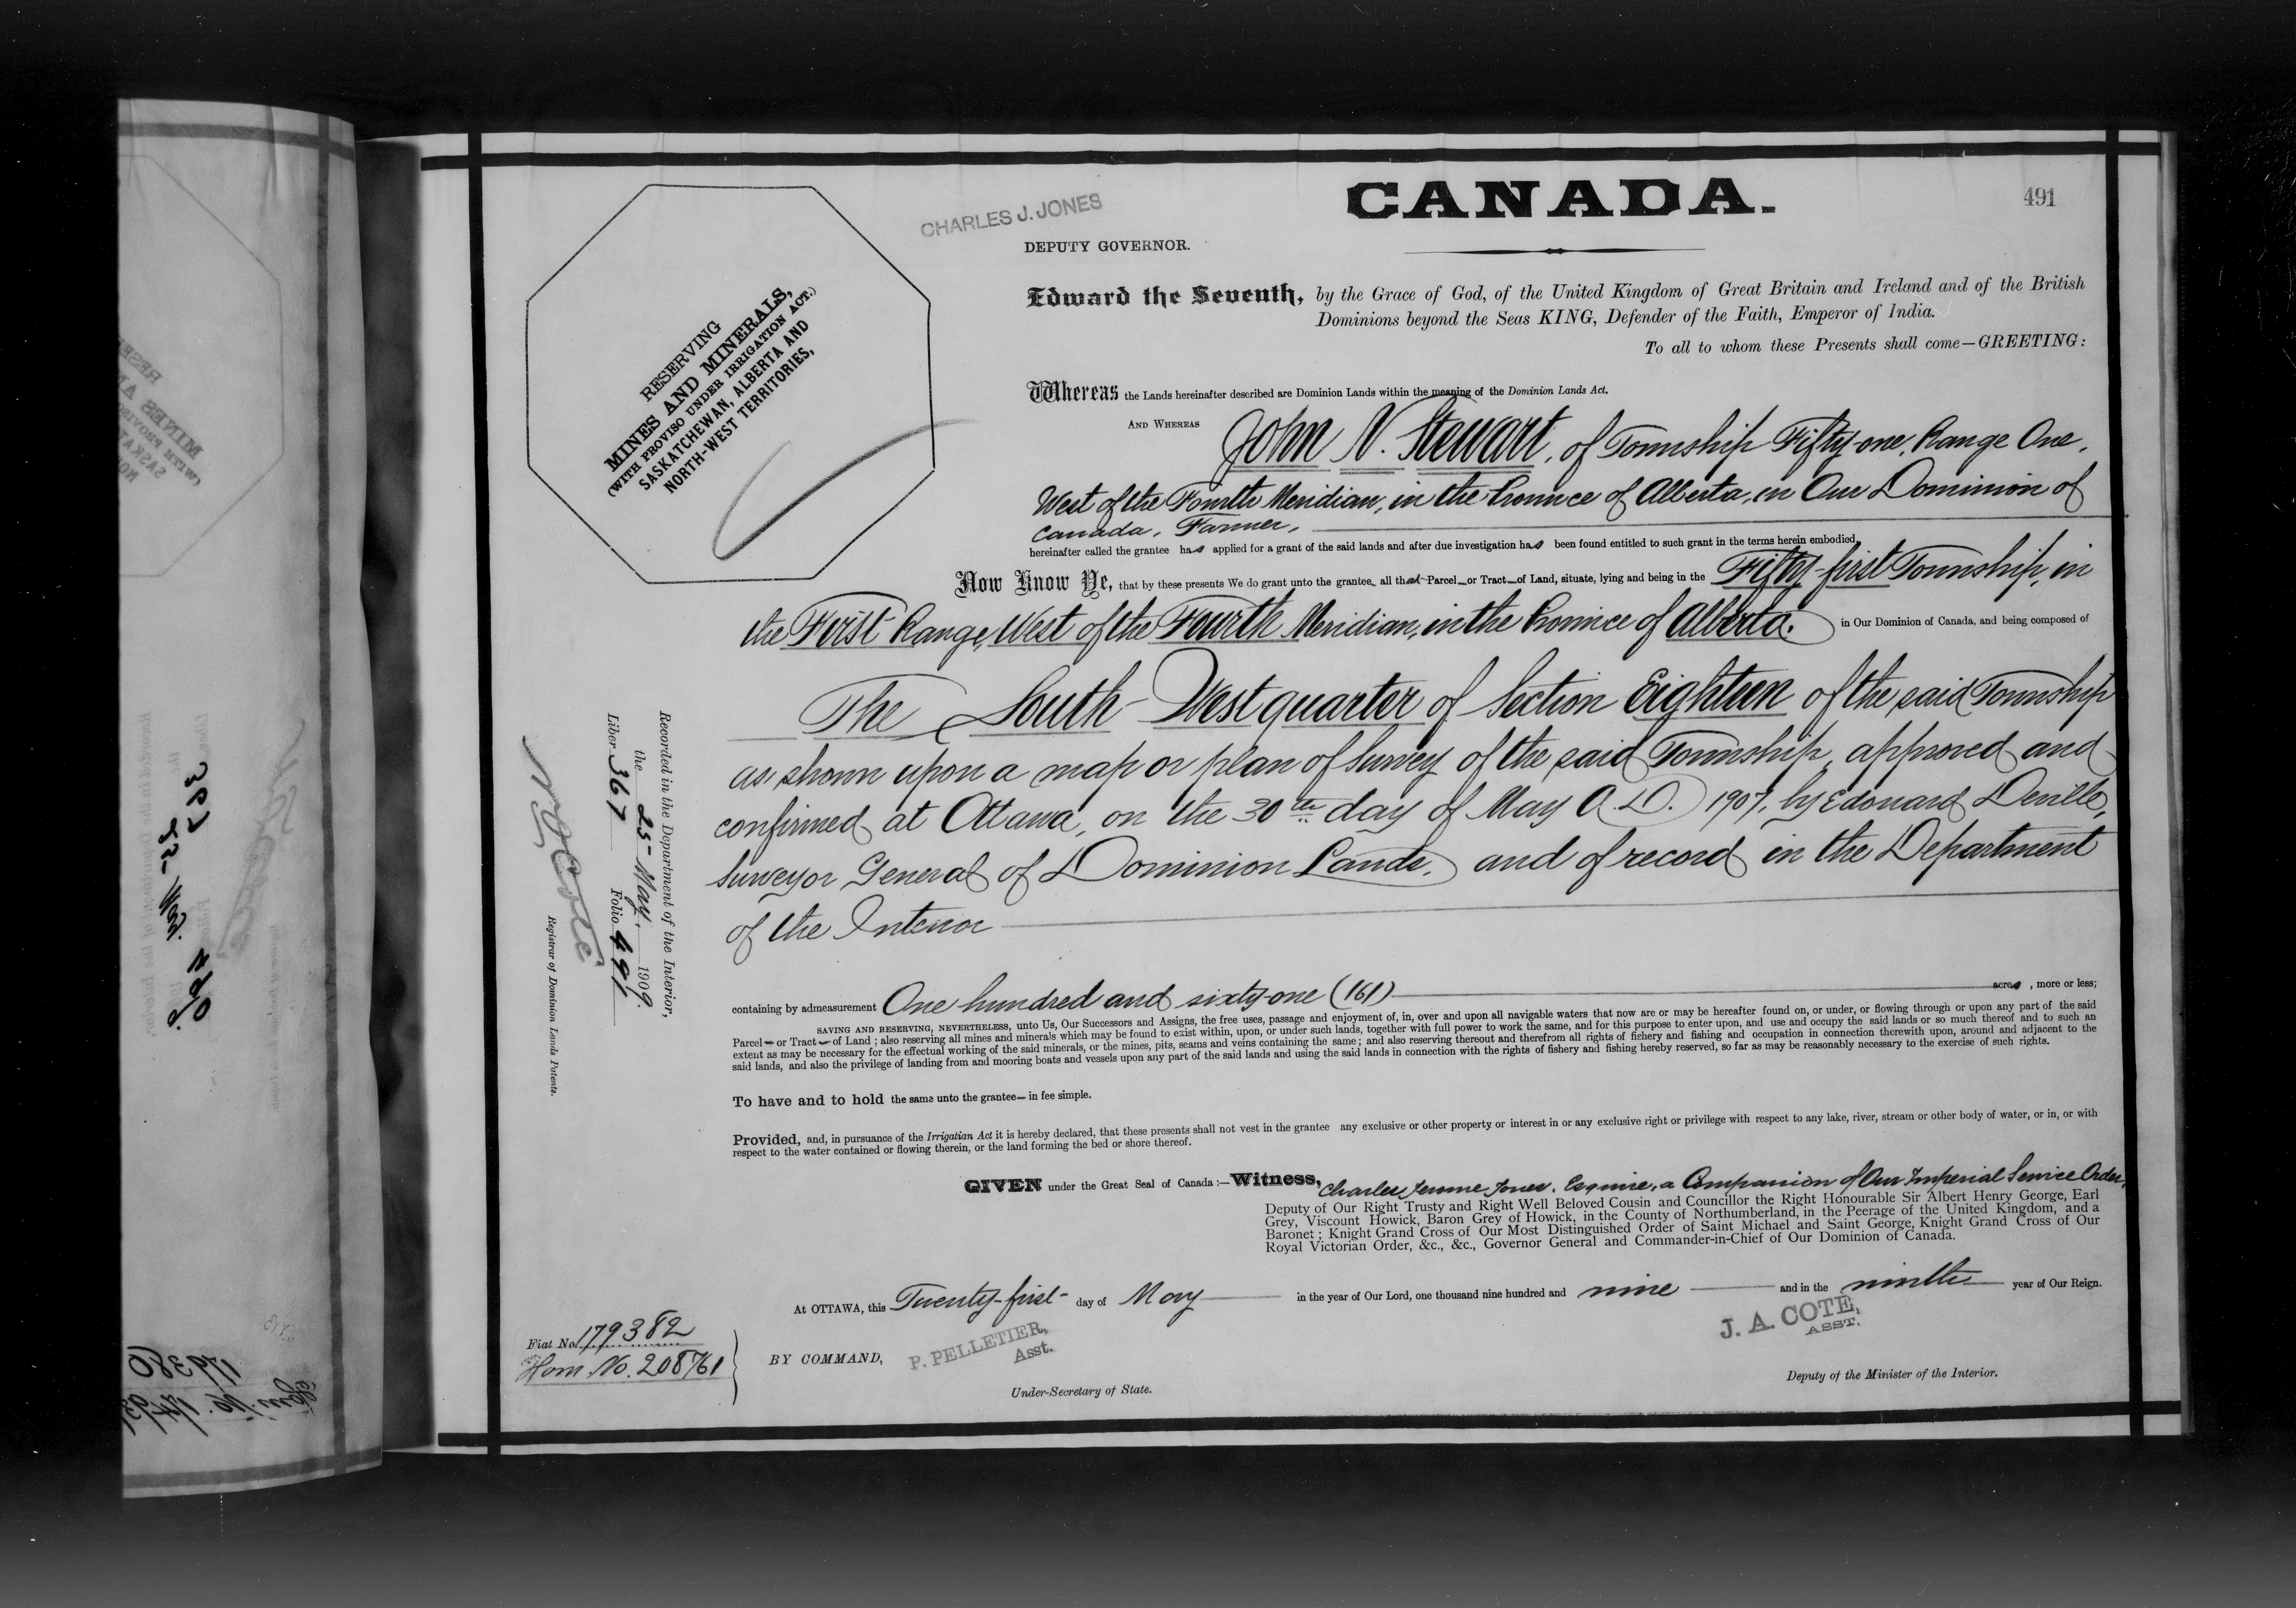 CANADA.
491
CHARLES J. JONES
DEPUTY GOVERNOR.
RESERVING
MINES AND MINERALS,
(WITH PROVISO UNDER IRRIGATION ACT.)
SASKATCHEWAN, ALBERTA AND
NORTH-WEST TERRITORIES,
Edward the Seventh, by the Grace of God, of the United Kingdom of Great Britain and Ireland and of the British
Dominions beyond the Seas KING, Defender of the Faith, Emperor of India.
To all to whom these Presents shall come—GREETING:
Whereas the Lands hereinafter described are Dominion Lands within the meaning of the Dominion Lands Act.
AND WHEREAS John N. Stewart, of Township Fifty-one, Range One,
West of the Fourth Meridian, in the Province of Alberta, in Our Dominion of
Canada, Farmer,
hereinafter called the grantee has applied for a grant of the said lands and after due investigation has been found entitled to such grant in the terms herein embodied.
Now Know Ye, that by these presents We do grant unto the grantee all that Parcel or Tract of Land, situate, lying and being in the Fifty-first Township, in
the First Range, West of the Fourth Meridian, in the Province of Alberta. in Our Dominion of Canada, and being composed of
The South-West quarter of Section Eighteen of the said Township
as shown upon a map or plan of Survey of the said Township, approved and
confirmed at Ottawa, on the 30th day of May A.D. 1907, by Edouard Deville,
Surveyor General of Dominion Lands, and of record in the Department
of the Interior
containing by admeasurement One hundred and sixty-one (161) acres, more or less;
SAVING AND RESERVING, NEVERTHELESS, unto Us, Our Successors and Assigns, the free uses, passage and enjoyment of, in, over and upon all navigable waters that now are or may be hereafter found on, or under, or flowing through or upon any part of the said
Parcel or Tract of Land; also reserving all mines and minerals which may be found to exist within, upon, or under such lands, together with full power to work the same, and for this purpose to enter upon, and use and occupy the said lands or so much thereof and to such an
extent as may be necessary for the effectual working of the said minerals, or the mines, pits, seams and veins containing the same; and also reserving thereout and therefrom all rights of fishery and fishing and occupation in connection therewith upon, around and adjacent to the
said lands, and also the privilege of landing from and mooring boats and vessels upon any part of the said lands and using the said lands in connection with the rights of fishery and fishing hereby reserved, so far as may be reasonably necessary to the exercise of such rights.
To have and to hold the same unto the grantee in fee simple.
Provided, and, in pursuance of the Irrigation Act it is hereby declared, that these presents shall not vest in the grantee any exclusive or other property or interest in or any exclusive right or privilege with respect to any lake, river, stream or other body of water, or in, or with
respect to the water contained or flowing therein, or the land forming the bed or shore thereof.
GIVEN under the Great Seal of Canada:—Witness, Charles Jerome Jones, Esquire, a Companion of Our Imperial Service Order,
Deputy of Our Right Trusty and Right Well Beloved Cousin and Councillor the Right Honourable Sir Albert Henry George, Earl
Grey, Viscount Howick, Baron Grey of Howick, in the County of Northumberland, in the Peerage of the United Kingdom, and a
Baronet; Knight Grand Cross of Our Most Distinguished Order of Saint Michael and Saint George, Knight Grand Cross of Our
Royal Victorian Order, &c., &c., Governor General and Commander-in-Chief of Our Dominion of Canada.
At OTTAWA, this Twenty-first day of May in the year of Our Lord, one thousand nine hundred and nine and in the ninth year of Our Reign.
BY COMMAND,
P. PELLETIER,
Asst.
Under-Secretary of State.
J. A. COTE,
ASST.
Deputy of the Minister of the Interior.
Fiat No. 179382
Hom. No. 208761
Recorded in the Department of the Interior,
the 25 May, 1909.
Liber 367 Folio 491
Registrar of Dominion Lands Patents.